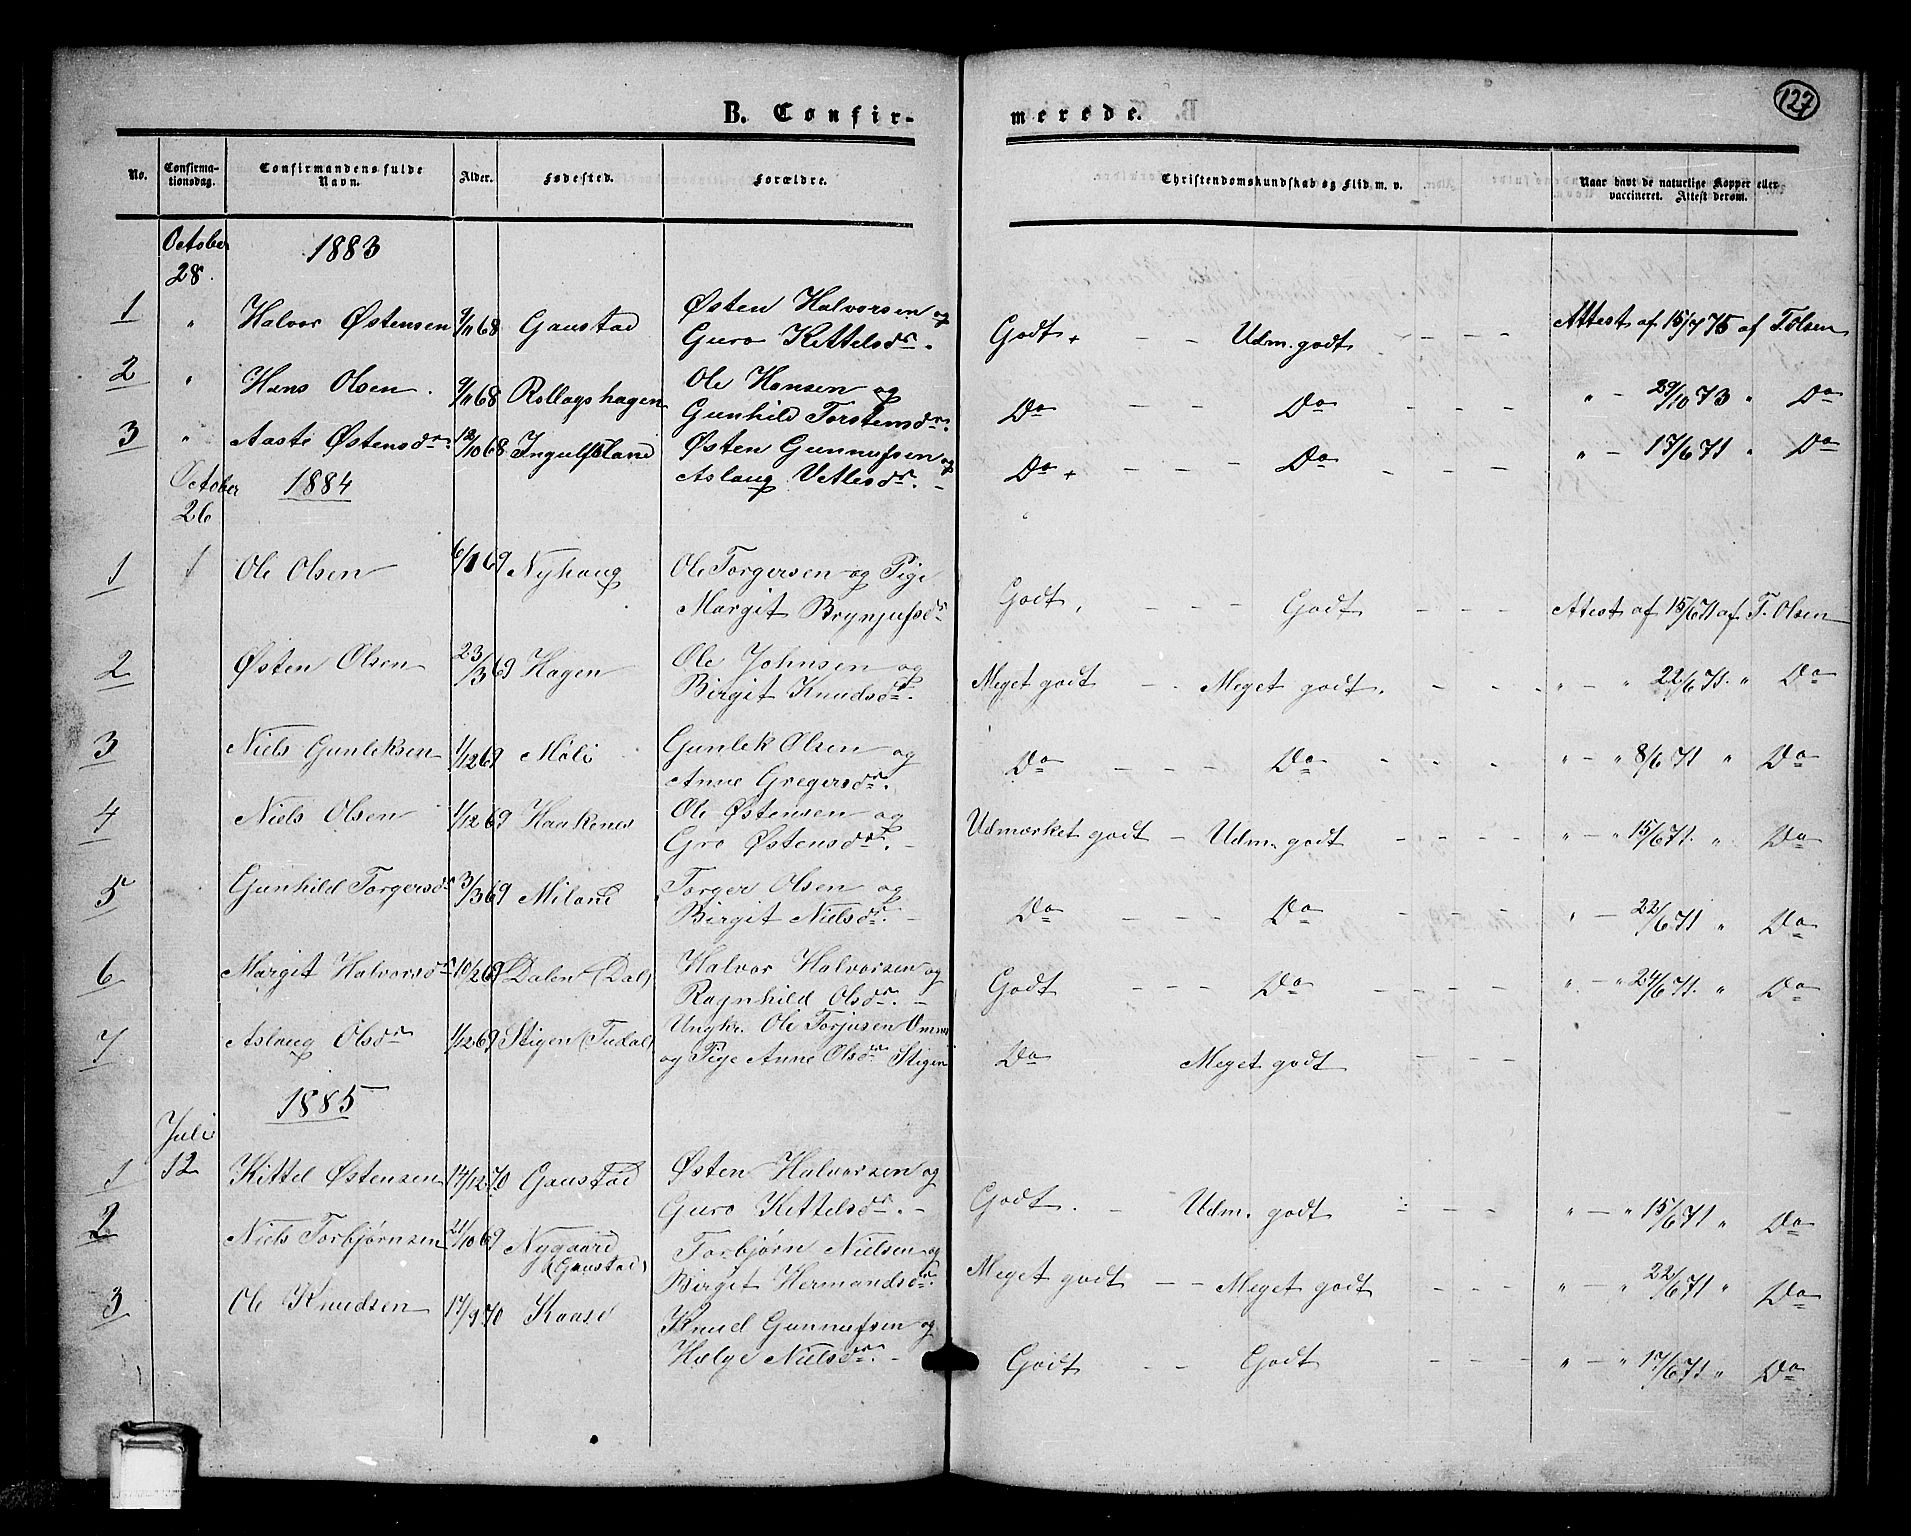 127
B. Confir-
merede.
No.
Confirma-
tionsdag.
Confirmandens fulde
Navn.
Alder.
Fødested.
Forældre.
Christendomskundskab og Flid m. v.
Naar havt de naturlige Kopper eller
vaccineret. Attest derom.
October 1883
28.
1 " Halvor Østensen 9/11 68 Gaustad Østen Halvorsen og
Guro Kittelsdr. Godt - - Udm. godt - - - Attest af 15/7 75 af T. Olsen
2 " Hans Olsen. 9/11 68 Rollagshagen Ole Hansen og
Gunhild Torstensdr. Do - - Do - - - " - 29/10 73 " Do
3 " Aaste Østensdr. 12/10 68 Ingulfsland Østen Gunnufsen og
Aslaug Vetlesdr. - Do - - - Do - - - " - 17/6 71 " Do
October 1884
26
1 Ole Olsen 6/1 69 Nyhaug Ole Torgersen og Pige
Margit Brynjufsdr Godt. - - - Godt - - - Attest af 15/6 71 af T. Olsen
2 Østen Olsen 23/3 69 Hagen Ole Johnsen og
Birgit Knudsdr. Meget godt - - Meget godt. - - - " - " 22/6 71. " Do
3 Niels Gunleksen 1/12 69 Møli Gunlek Olsen og
Anne Gregersdr. Do - - - Do - - - " - " 8/6 71 " Do
4 Niels Olsen 1/12 69 Haakenes Ole Østensen og
Gro Østensdr. - Udmærket godt - Udm. godt - - - - " - " 15/6 71. " Do
5 Gunhild Torgersdr 3/3 69 Miland Torger Olsen og
Birgit Nielsdr. - Do - - - Do - - - - " - 22/6 71 " Do
6 Margit Halvorsdr 10/2 69 Dalen (Dal) Halvor Halvorsen og
Ragnhild Olsdr. - Godt - - - Do - - - - " - " 24/6 71. " Do
7 Aslaug Olsdr 1/12 69 Stigen (Tudal) Ungkr. Ole Torjusen
og Pige Anne Olsdr. Stigen Do Meget godt - - -
1885
Juli
1 12 Kittel Østensen 14/12 70 Gaustad Østen Halvorsen og
Guro Kittelsdr. - Godt. - Udm. godt - - - " - " 15/6 71 " Do
2 Niels Torbjørnsen 21/10 69 Nygaard Torbjørn Nielsen og
(Gaustad) Birgit Hermandsdr. Meget godt - - Meget godt - - - " - " 22/6 71 " Do
3 Ole Knudsen 17/9 70 Kaase Knud Gunnufsen og
Hælge Nielsdr. - Godt - - Godt - - - " - " 17/6 71 " Do